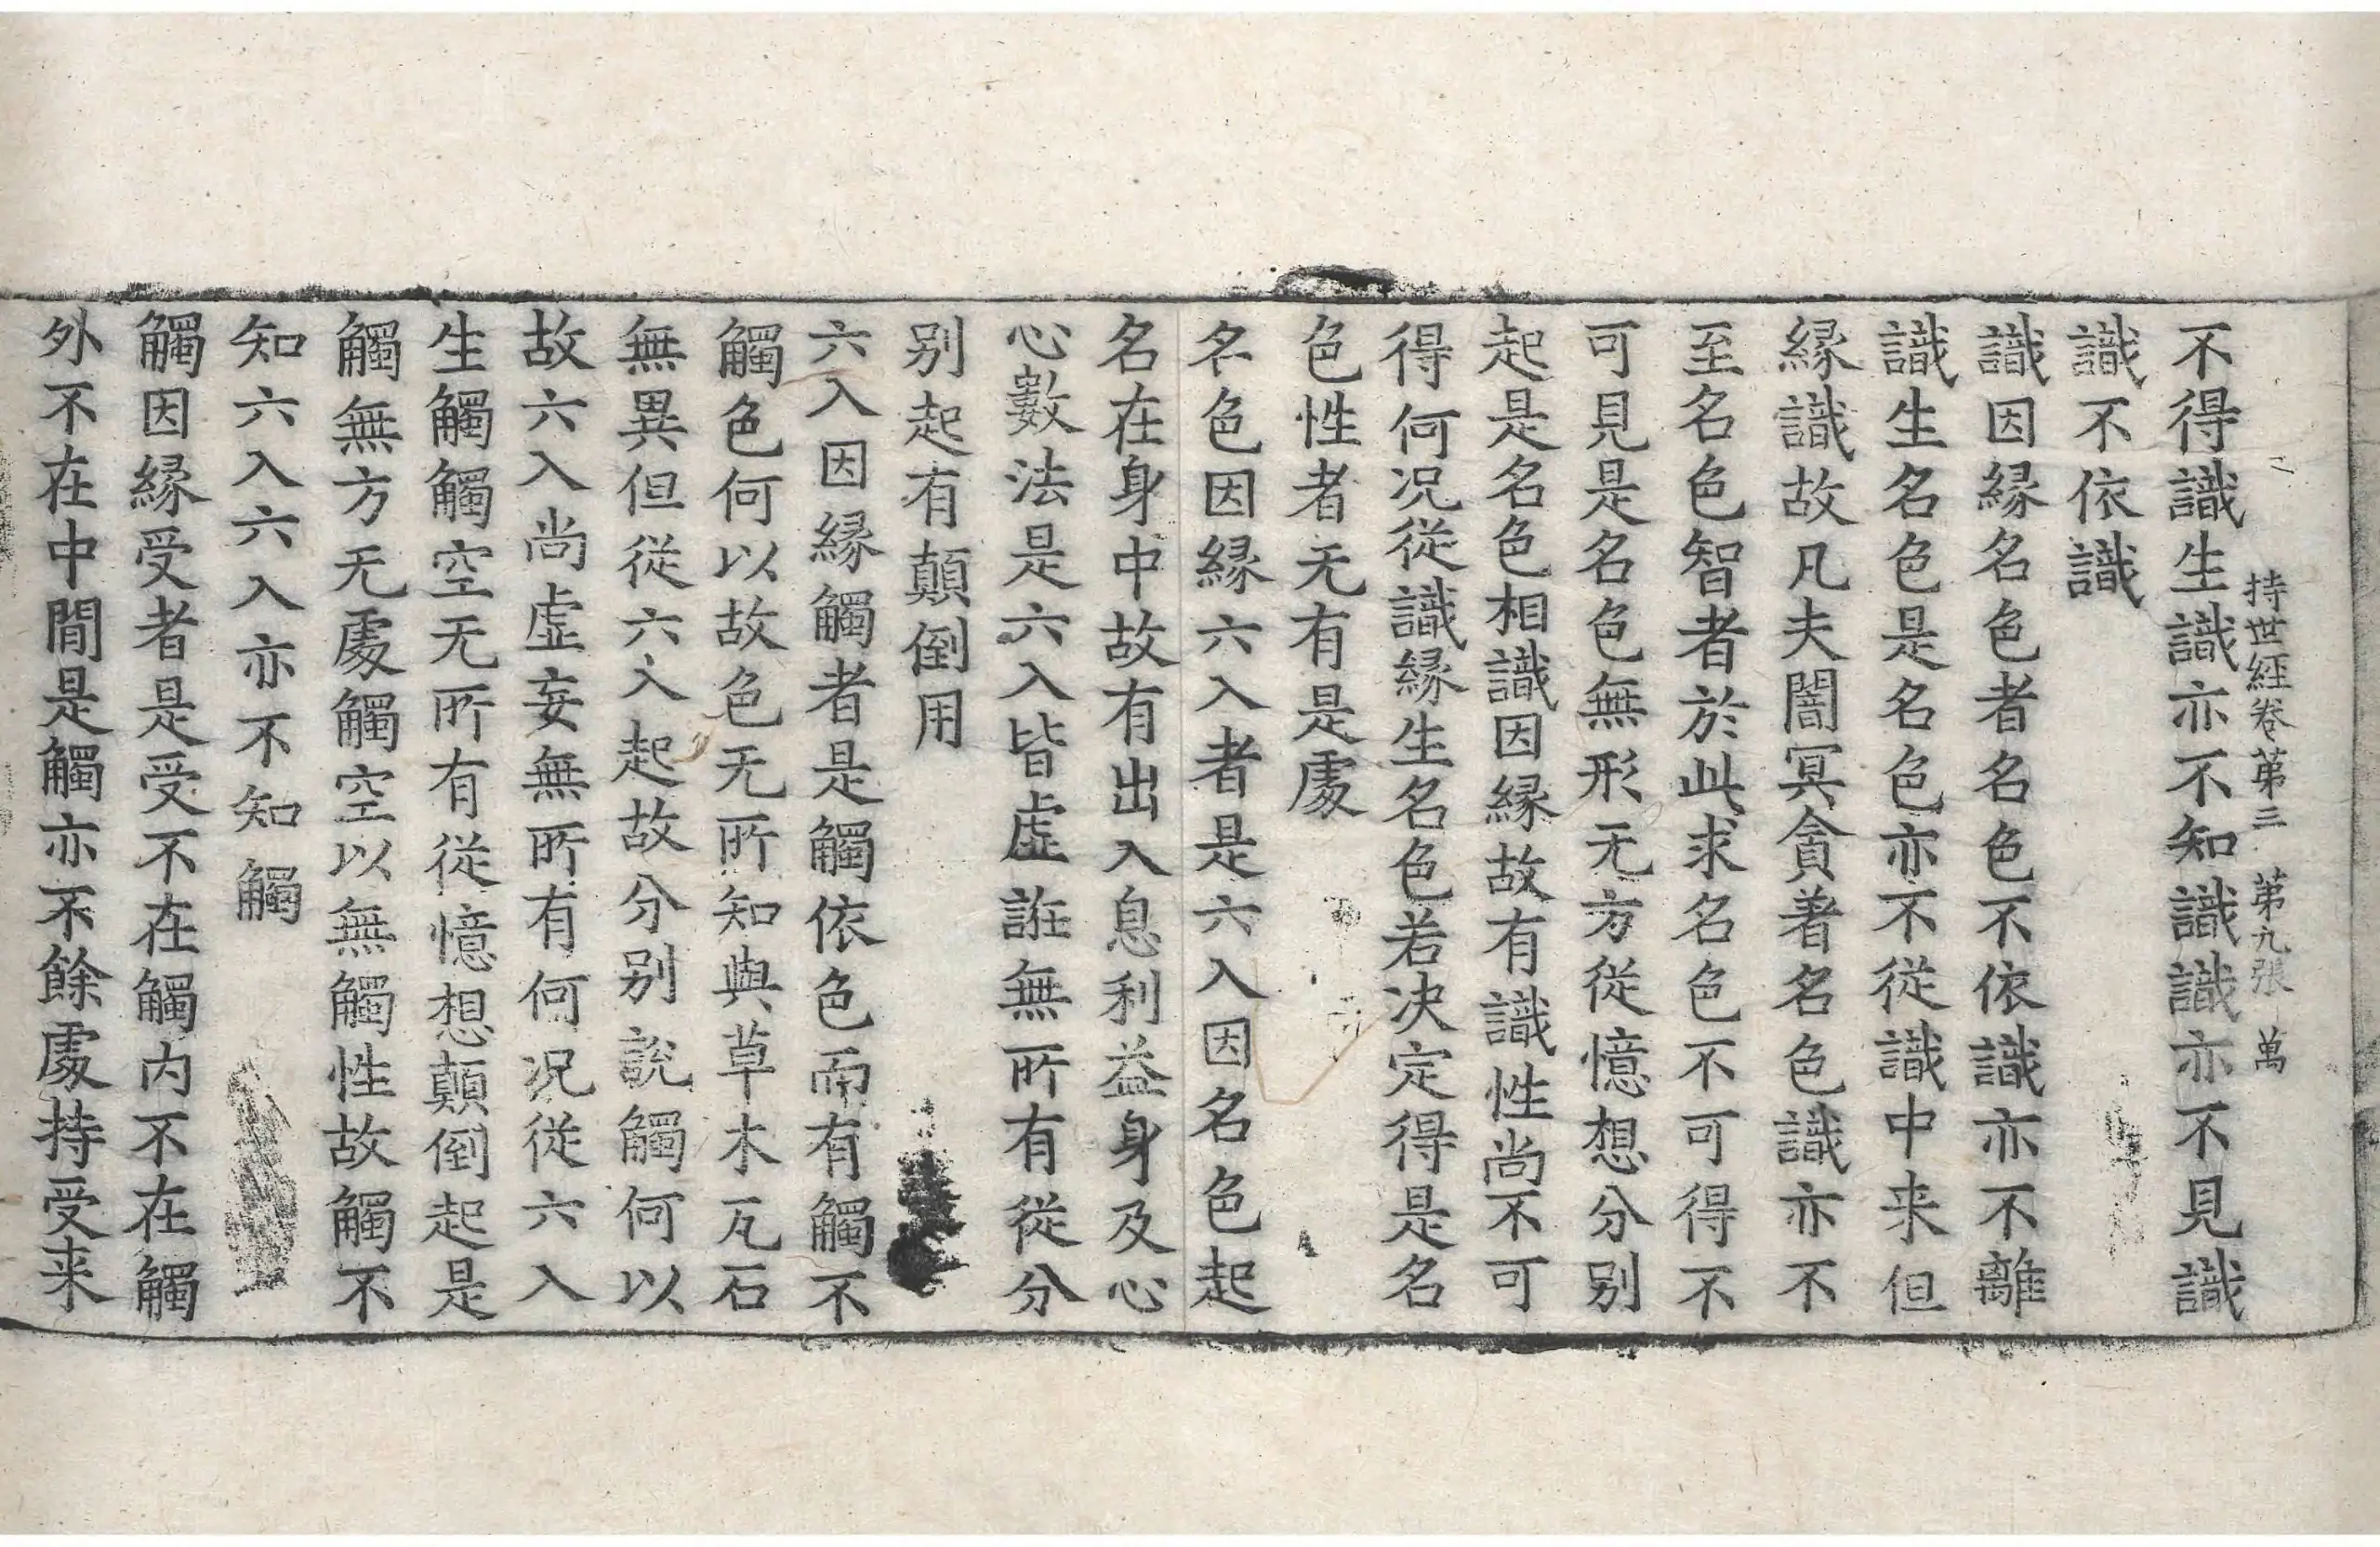 持世經卷第三 第九張 萬
不得識生識亦不知識識亦不見識
識不依識
識因緣名色者名色不依識亦不離
識生名色是名色亦不從識中来但
緣識故凡夫闇冥貪著名色識亦不
至名色智者於此求名色不可得不
可見是名色無形无方從憶想分别
起是名色相識因緣故有識性尚不可
得何况從識緣生名色若决定得是名
色性者无有是處
名色因緣六入者是六入因名色起
名在身中故有出入息利益身及心
心數法是六入皆虛誑無所有從分
别起有顛倒用
六入因緣觸者是觸依色而有觸不
觸色何以故色无所知與草木瓦石
無異但從六入起故分别說觸何以
故六入尚虛妄無所有何况從六入
生觸觸空无所有從憶想顛倒起是
觸無方无處觸空以無觸性故觸不
知六入六入亦不知觸
觸因緣受者是受不在觸内不在觸
外不在中間是觸亦不餘處持受来